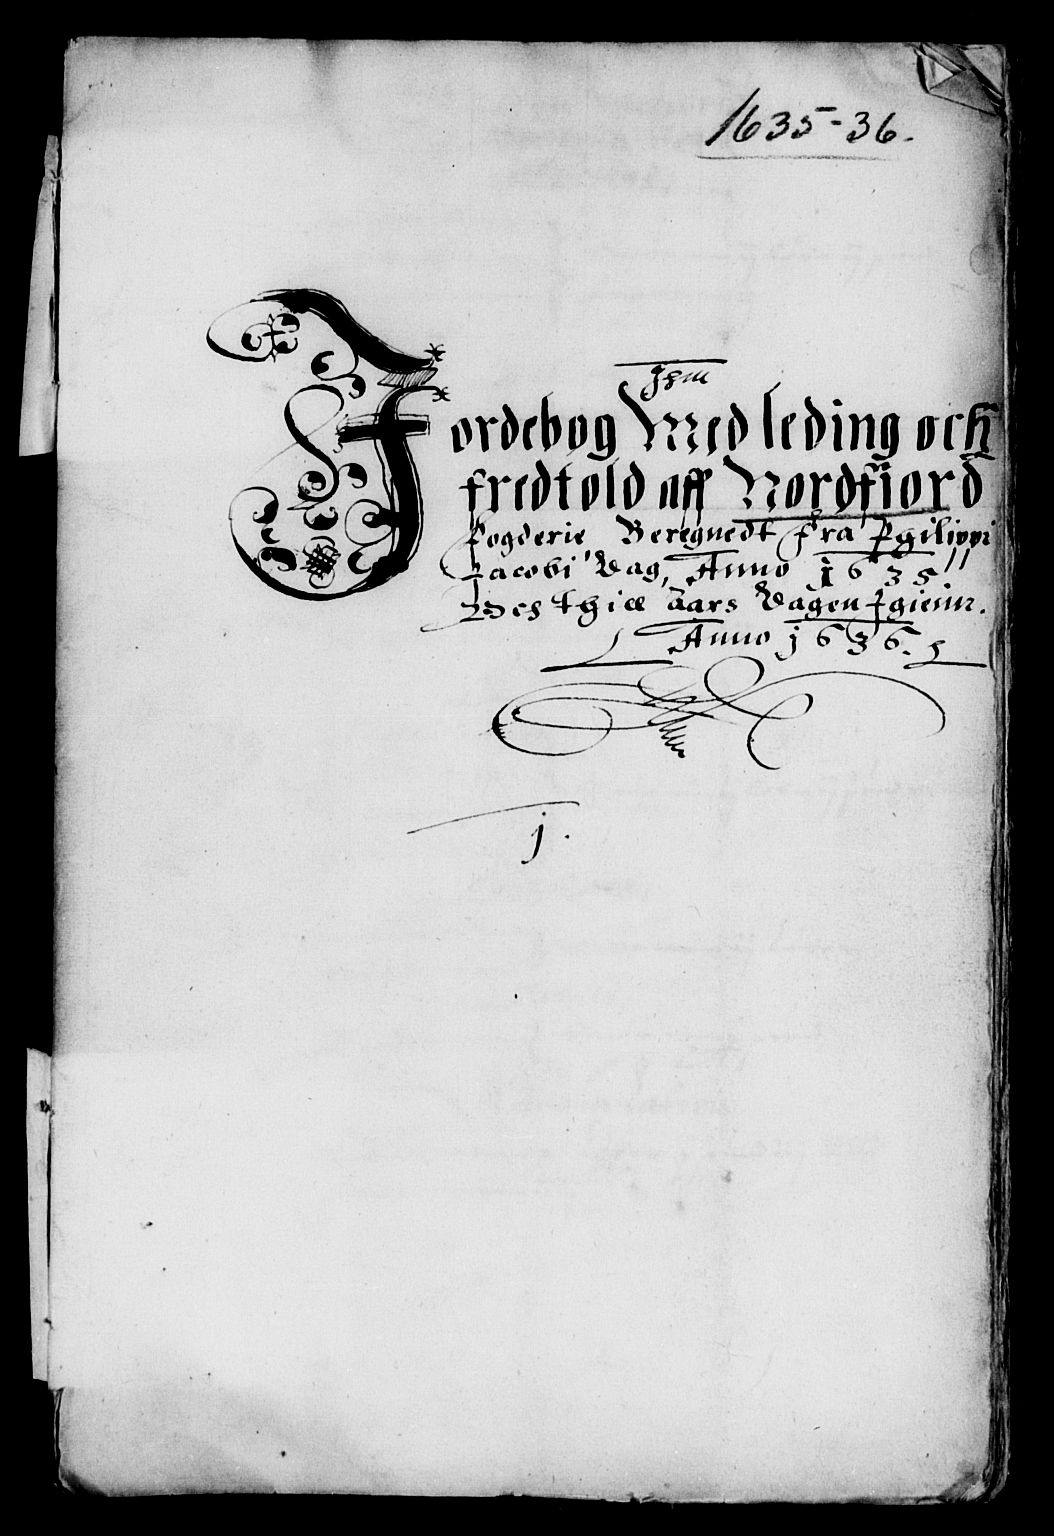 1635-36.
Jordebog Med leding och
fredtold aff Nordfiord
fogderie Beregnedt fra Philippi
Jacobi Dag, Anno 1635
Och thill aars Dagen Igienn.
Anno j636.
j.